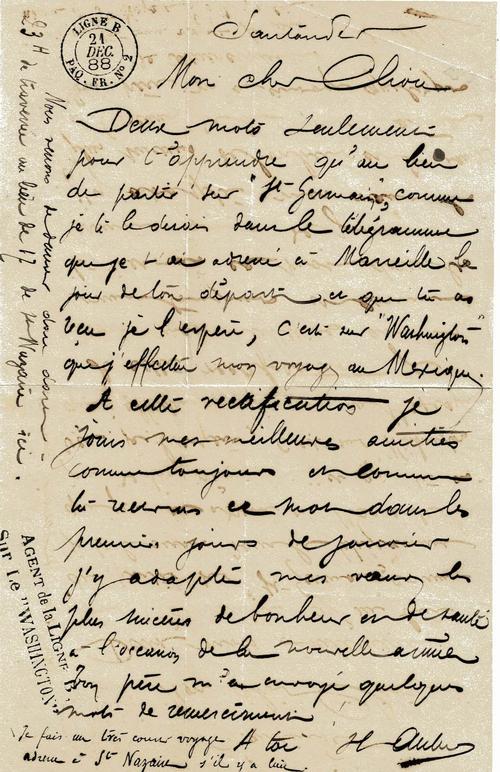 LIGNE B
21
DEC.
88
PAQ. FR. Nº 2
Santander
Mon cher
Deux mots seulement
pour t'apprendre qu'au lieu
de partir sur "St Germain", comme
je te le disais dans le télégramme
que je t'ai adressé à Marseille le
jour de ton départ et que tu as
reçu je l'espère, c'est sur "Washington"
que j'effectue mon voyage au Mexique.
A cette rectification je
joins mes meilleures amitiés
comme toujours et comme
tu recevras ce mot dans les
premiers jours de janvier
j'y adapte mes voeux les
plus sincères de bonheur et de santé
à l'occasion de la nouvelle année
Ton père m'a envoyé quelques
mots de remerciement
A toi H
Je fais un très court voyage
adresse à St Nazaire s'il y a lieu.
Nous venons de
23 H de traversée au lieu de 17 de St Nazaire ici.
AGENT de la LIGNE B.
Sur Le "WASHINGTON"